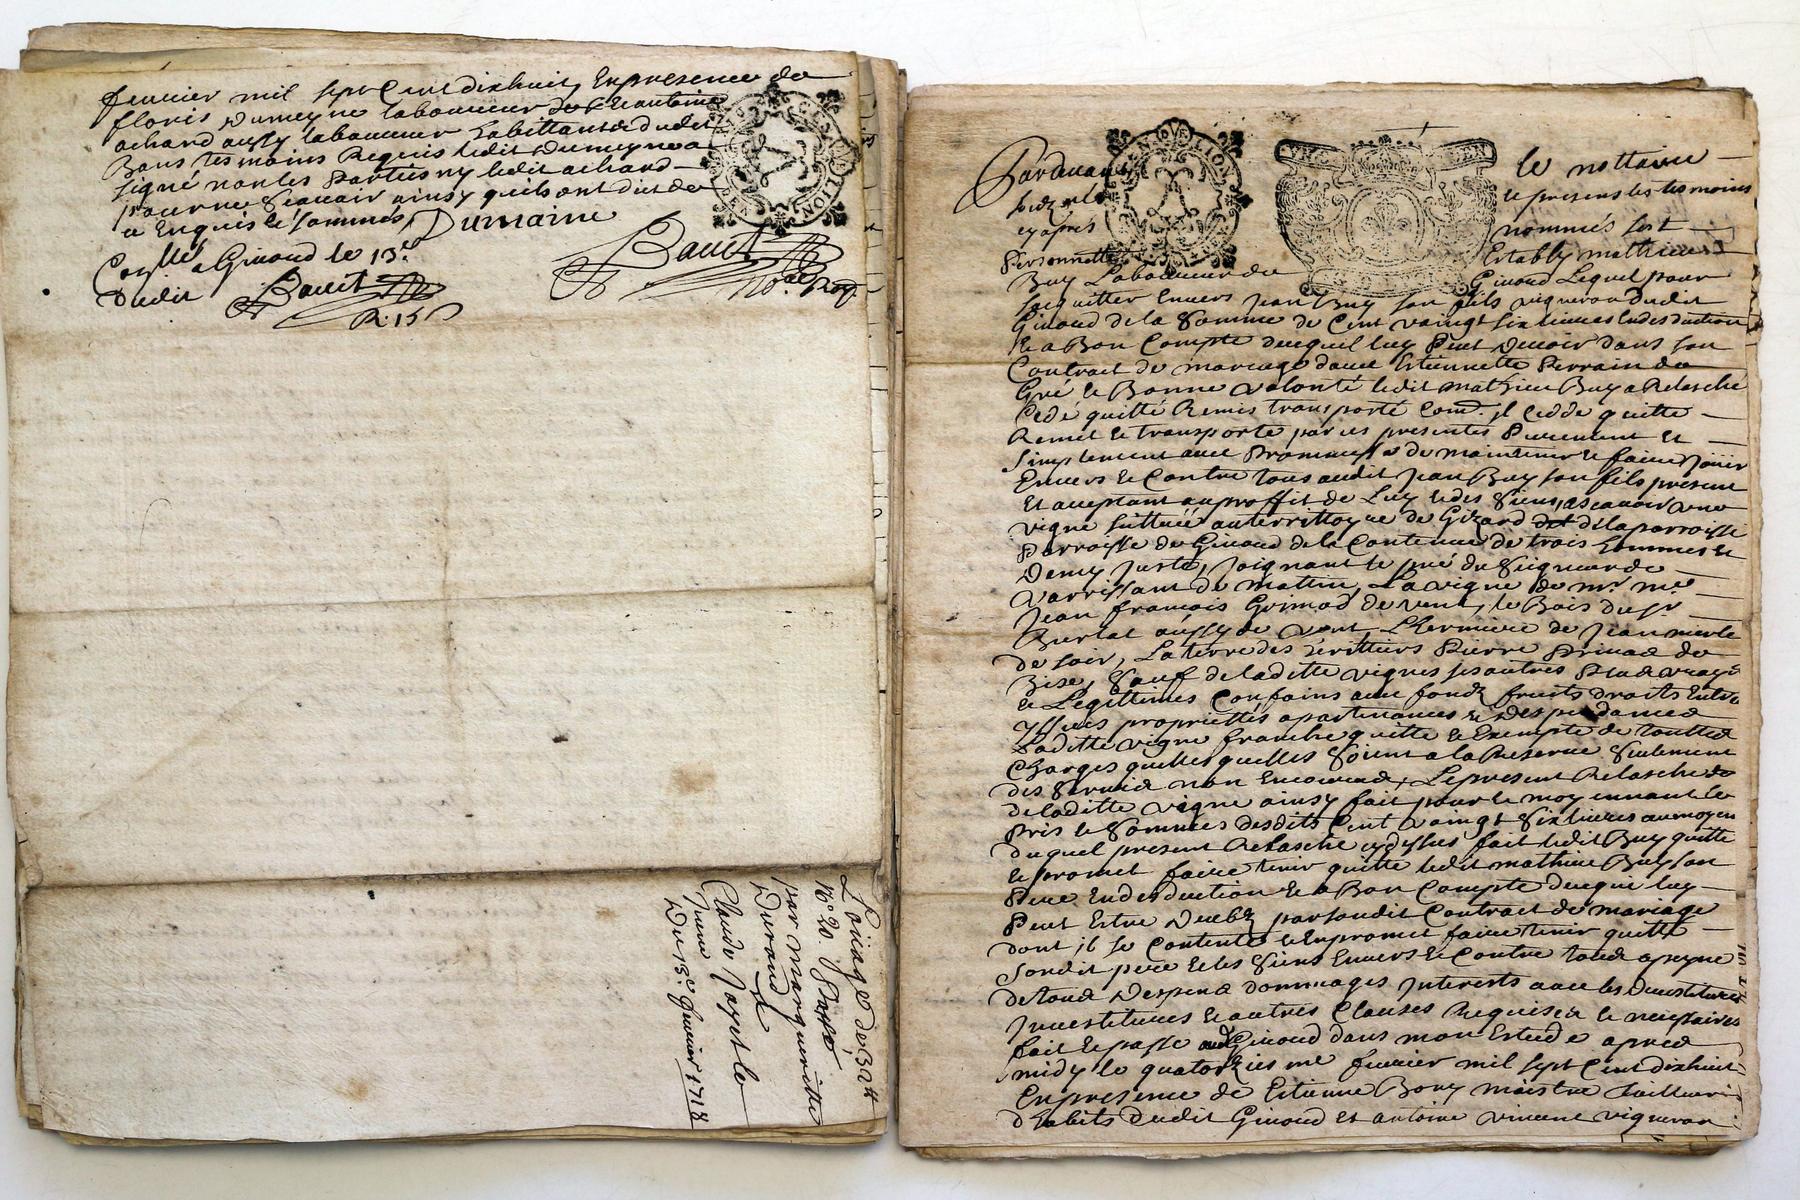 feuurier mil sept Cent dixhuit, En presence de
floris Dumeyne laboureur Antoine
achard aussy laboureur habittants dudit
tesmoins Requis ledit Dumeyne a
signé non les Parties ny ledit achard
pour ne sçauoir ainsy quils ont dit de
ce Enquis et sommés, Dumaine
Giuord le 15.e
dudit Bauet Bauet
R. 15 s
Loüage de 132 tt
N.o 20.
par margueritte
Durand
a
Claude Jayet le
Jeune
Du 15.e feurier 1718
GEN DE LION
Pardeuant le nottaire
soubz.né et presens les tesmoins
cy après nommés fut
Personnellement Estably mathieu
Buy Laboureur de Giuord Lequel pour
sacquitter Enuers Jean Buy son fils vigneron dudit
Giuord de la somme de Cent vaingt six liures En desduction
et a Bon Compte de ce quil luy Peut Deuoir dans son
Contrat de mariage dauec Estiennette Perrain de
Gré et Bonne volonté ledit mathieu Buy a Relasché
Cedé quitté Remis transporté Com.e il Cedde quitte
Remet et transporte par ces presentes Purement et
simplement auec Promesse de maintenir et faire Joüir
Enuers et Contre tous audit Jean Buy son fils présent
et aceptant au proffit de Luy et des siens, asçauoir vne
vigne sittuée au territtoyre de Gizard de la parroisse
Parroisse de Giuord de la Contenue de trois hommes et
Demy Juste, Joignant le pré du seigneur de
Varrissant de mattin, La vigne de m.r m.e
Jean françois Grimod de vent, le Bois du s.r
Burlat aussy de vent, Lhermiere de Jean
de soir, La terre des heritiers Pierre Priuas de
Bize, sauf de laditte vignes ses autres Plus vrays
et Legittimes Confains auec fondz fruits droits Entrées
yssues propriettés apartenances et Despendances
Laditte vigne franche quitte et Exempte de touttes
Charges quelles quelles soient a la Reserue seulement
des seruis non Encourus, Le present Relasche de
de laditte vigne ainsy fait pour et moyennant le
Pris et sommes desdits Cent vaingt six liures au moyen
duquel present Relasche cy dessus fait ledit Buy quitte
et promet faire tenir quitte ledit mathieu Buy son
Pere En desduction et a Bon Compte de ce qui luy
Peut Estre Deubz par sondit Contrat de mariage
dont il se Contente et En promet faire tenir quitte
sondit pere et les siens Enuers et Contre tous a peyne
de tous Despens dommages Interests auec les Deuestitures
Inuestitures et autres Clauses Requises et necessaires
fait et passé aud Giuord dans mon Estude apres
midy le quatorziesme feurier mil sept Cent dixhuit
En presence de Estienne Bouy maistre tailleur
d'habits dudit Giuord et antoine vincent vigneron